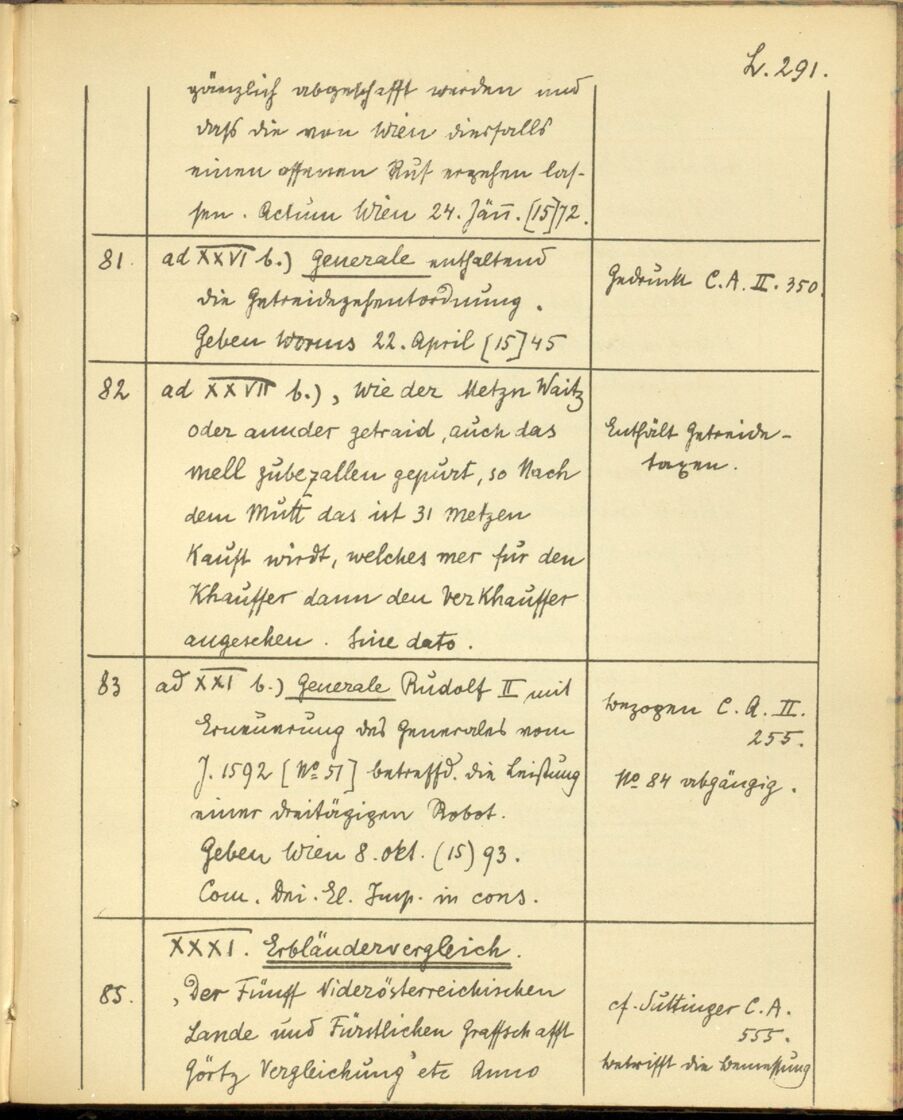 L. 291.
gänzlich abgeschafft werden und
dass die von Wien diesfalls
einen offenen Ruf ergehen las-
sen. Actum Wien 24. Jäñ. [15]72.
81 ad XXVI b.) Generale enthaltend
die Getreidezehentordnung.
Geben Worms 22. April [15]45
Gedruckt C. A. II. 350.
82 ad XXVII b.) „Wie der Metzn Waitz
oder annder getraid, auch das
mell zubezallen gepürt, so Nach
dem Mutt das ist 31 Metzen
Kaufft wirdt, welches mer für den
Khauffer dann den VerKhauffer
angesehen. Sine dato.
Enthält Getreide-
taxen.
83 ad XXI b.) Generale Rudolf II mit
Erneuerung des Generales vom
J. 1592 [No 51] betreffd. die Leistung
einer dreitägigen Robot.
Geben Wien 8. Okt. (15)93.
Com. Dni. El. Imp. in cons.
bezogen C. A. II.
255.
No 84 abgängig.
XXXI. Erbländervergleich.
85. „Der Fünff Niderösterreichischen
Lande und Fürstlichen Graffschafft
Görtz Vergleichung" etc Anno
cf. Suttinger C. A.
555.
betrifft die Bemessung